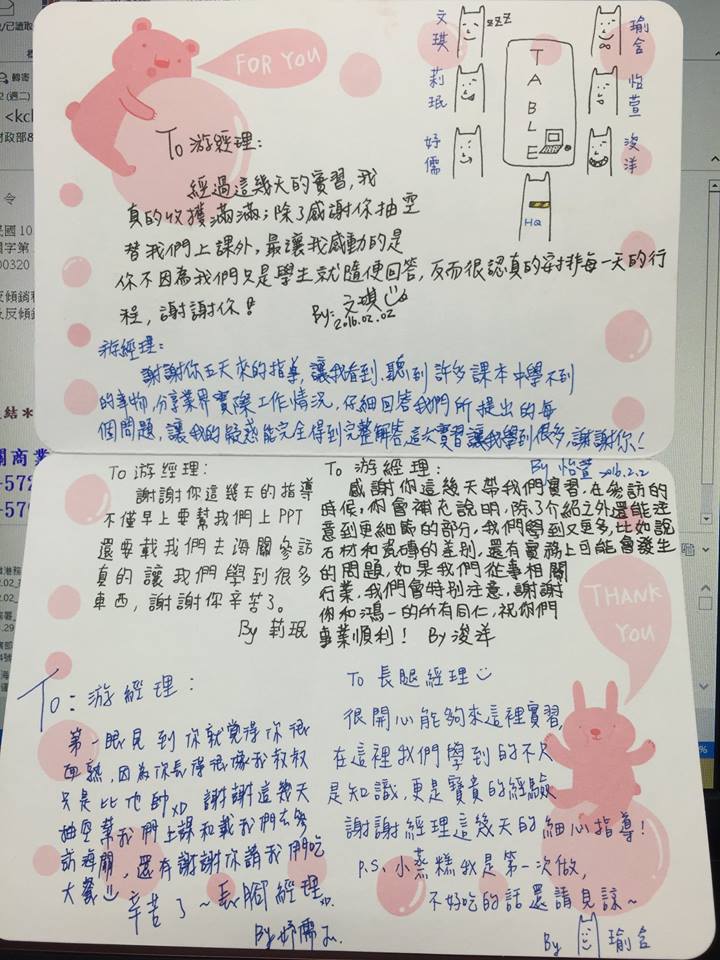 FOR YOU
文琪
zzz
莉珉
妤儒
TABLE
瑜含
怡萱
浚洋
HQ
To 游經理：
經過這幾天的實習，我
真的收獲滿滿；除了感謝你抽空
替我們上課外，最讓我感動的是
你不因為我們只是學生就隨便回答，反而很認真的安排每一天的行
程，謝謝你！
By：文琪
2016.02.02
游經理：
謝謝你五天來的指導，讓我看到、聽到許多課本中學不到
的事物，分享業界實際工作情況，仔細回答我們所提出的每
個問題，讓我的疑惑能完全得到完整解答，這次實習讓我學到很多，謝謝你！
By 怡萱 2016.2.2
To 游經理：
謝謝你這幾天的指導
不僅早上要幫我們上PPT
還要載我們去海關參訪
真的讓我們學到很多
東西，謝謝你辛苦了。
By 莉珉
To 游經理：
感謝你這幾天帶我們實習，在參訪的
時候，你會補充說明，除了介紹之外還能注
意到更細節的部分，我們學到又更多，比如說
石材和瓷磚的差別，還有實務上可能會發生
的問題，如果我們從事相關
行業，我們會特別注意，謝謝
你和鴻一的所有同仁，祝你們
事業順利！ By 浚洋
THANK YOU
To：游經理：
第一眼見到你就覺得你很
面熟，因為你長得很像我叔叔
只是比他帥xD 謝謝這幾天
抽空幫我們上課和載我們去參
訪海關，還有謝謝你請我們吃
大餐
辛苦了～長腳經理
By 妤儒
To 長腿經理
很開心能夠來這裡實習，
在這裡我們學到的不只
是知識，更是寶貴的經驗
謝謝經理這幾天的細心指導！
P.S. 小蒸糕我是第一次做，
不好吃的話還請見諒～
By 瑜含